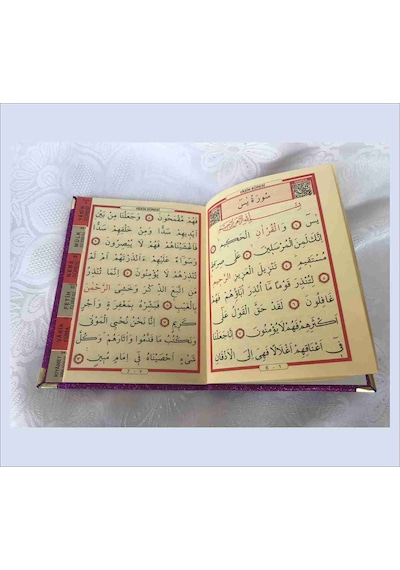 YÂSÎN SÛRESİ
سُورَةُ يٰسٓ
يٰسٓ ﴿١﴾ وَالْقُرْاٰنِ الْحَكِيمِ ﴿٢﴾
اِنَّكَ لَمِنَ الْمُرْسَلِينَ ﴿٣﴾ عَلٰى صِرَاطٍ
مُسْتَقِيمٍ ﴿٤﴾ تَنْزِيلَ الْعَزِيزِ الرَّحِيمِ ﴿٥﴾
لِتُنْذِرَ قَوْمًا مَا اُنْذِرَ اٰبَاؤُهُمْ فَهُمْ
غَافِلُونَ ﴿٦﴾ لَقَدْ حَقَّ الْقَوْلُ عَلٰى
اَكْثَرِهِمْ فَهُمْ لَا يُؤْمِنُونَ ﴿٧﴾ اِنَّا جَعَلْنَا
فِى اَعْنَاقِهِمْ اَغْلَالًا فَهِىَ اِلَى الْاَذْقَانِ
YÂSÎN SÛRESİ
فَهُمْ مُقْمَحُونَ ﴿٨﴾ وَجَعَلْنَا مِنْ بَيْنِ
اَيْدِيهِمْ سَدًّا وَمِنْ خَلْفِهِمْ سَدًّا
فَاَغْشَيْنَاهُمْ فَهُمْ لَا يُبْصِرُونَ ﴿٩﴾
وَسَوَٓاءٌ عَلَيْهِمْ ءَاَنْذَرْتَهُمْ اَمْ لَمْ
تُنْذِرْهُمْ لَا يُؤْمِنُونَ ﴿١٠﴾ اِنَّمَا تُنْذِرُ
مَنِ اتَّبَعَ الذِّكْرَ وَخَشِىَ الرَّحْمٰنَ
بِالْغَيْبِ فَبَشِّرْهُ بِمَغْفِرَةٍ وَاَجْرٍ
كَرِيمٍ ﴿١١﴾ اِنَّا نَحْنُ نُحْيِى الْمَوْتٰى
وَنَكْتُبُ مَا قَدَّمُوا وَاٰثَارَهُمْ وَكُلَّ
شَىْءٍ اَحْصَيْنَاهُ فِى اِمَامٍ مُبِينٍ ﴿١٢﴾
YASİN
MÜLK
NEBE
FETİH
VAKIA
KIYAMET